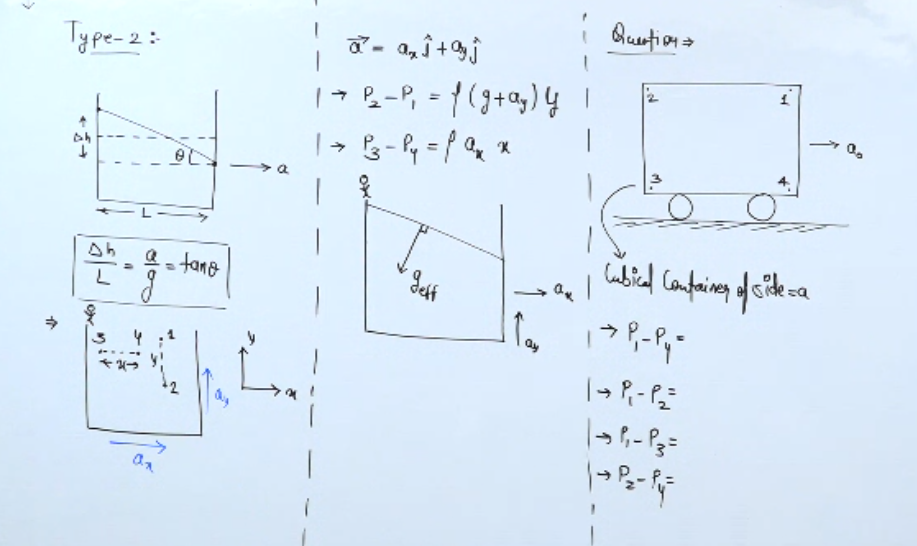 Type-2:-
Δh
θ
→ a
L
Δh/L = a/g = tanθ
⇒
3 4 1
x y
2
y
x
a_y
a_x
a⃗ = a_x ĵ + a_y ĵ
→ P₂-P₁ = ρ(g+a_y) y
→ P₃-P₄ = ρ a_x x
g_eff
→ a_x
a_y
Question ⇒
2 1
→ a₀
3 4
Cubical Container of side = a
→ P₁-P₄ =
→ P₁-P₂ =
→ P₁-P₃ =
→ P₂-P₄ =